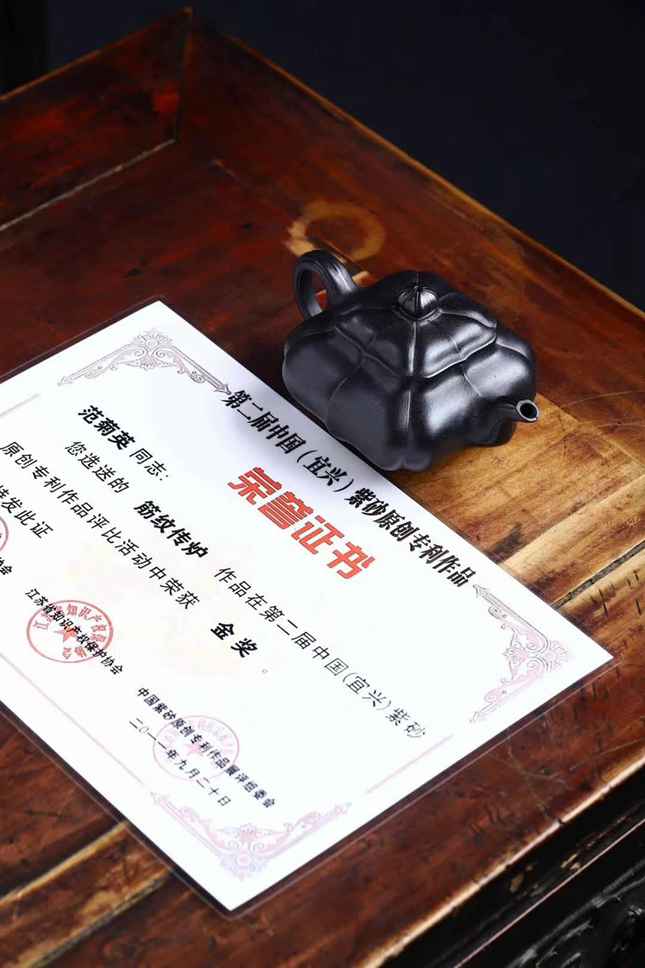 第二届中国（宜兴）紫砂原创专利作品
荣誉证书
范菊英 同志：
您选送的 筋纹传炉 作品在第二届中国（宜兴）紫砂
原创专利作品评比活动中荣获 金奖 。
特发此证
协会
江苏省知识产权保护协会
中国紫砂原创专利作品展评组委会
二〇一一年九月二十日